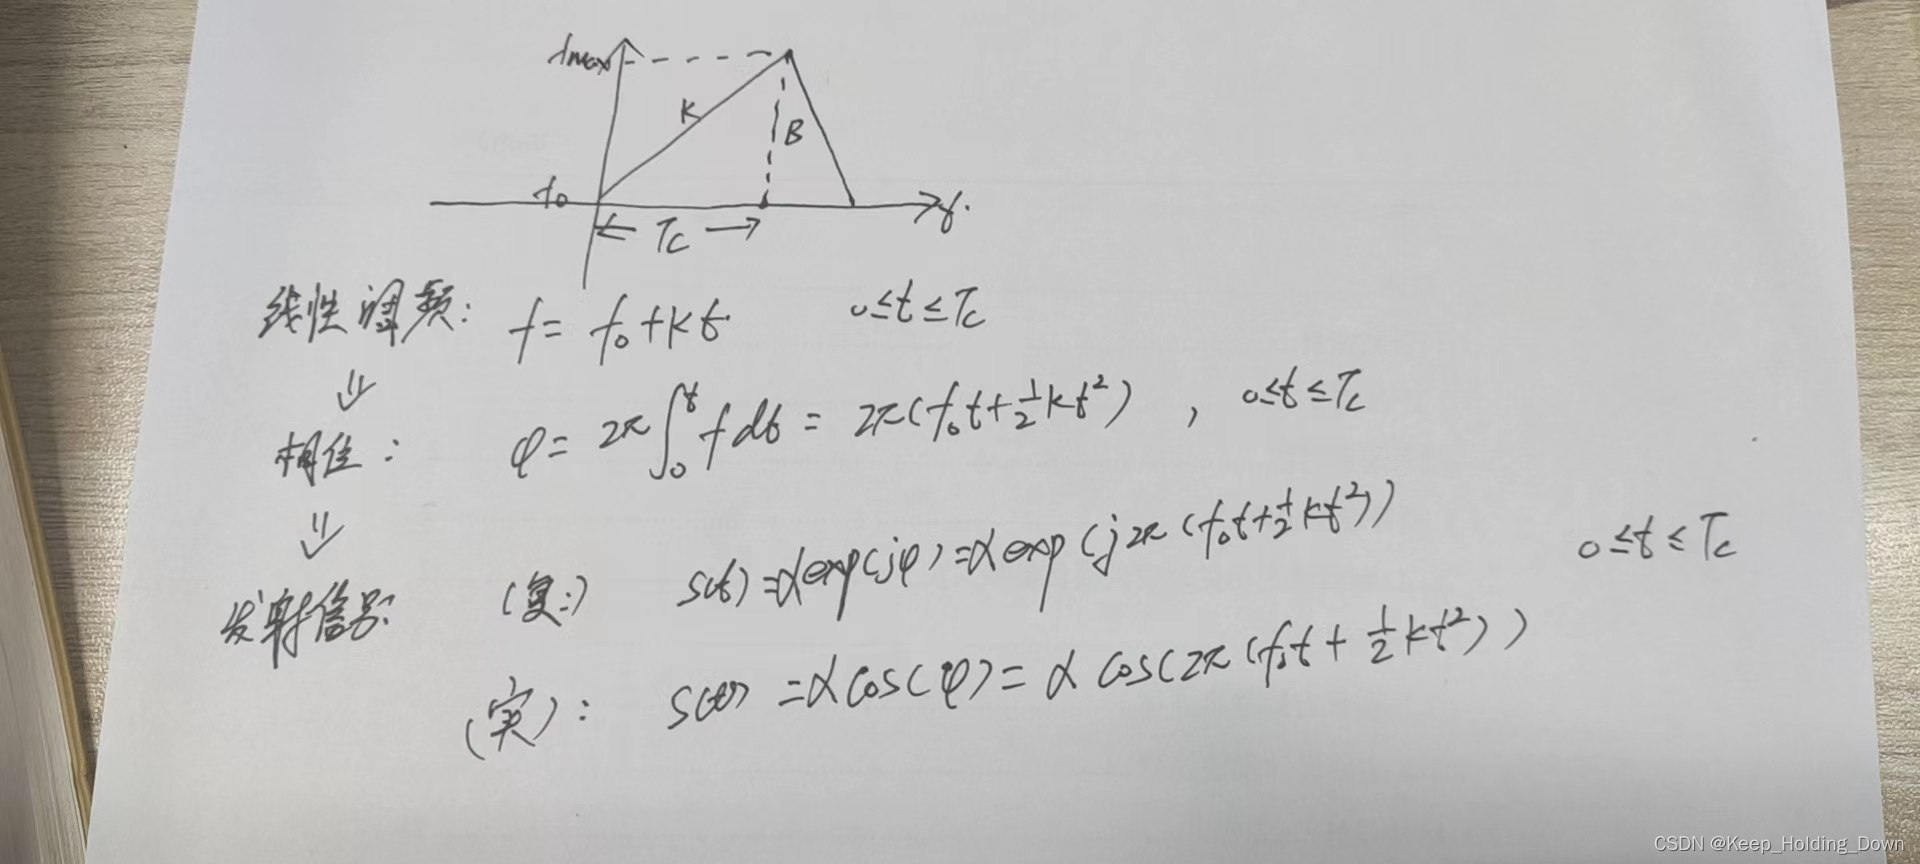 fmax
K
B
f₀
t.
Tc
线性调频: f = f₀+kt 0≤t≤Tc
相位: φ= 2π∫₀ᵗ f dt = 2π(f₀t+½kt²) , 0≤t≤Tc
发射信号: (复:) s(t)=αexp(jφ)=αexp(j2π(f₀t+½kt²)) 0≤t≤Tc
(实): s(t) =αcos(φ)= α cos(2π(f₀t+½kt²))
CSDN @Keep_Holding_Down